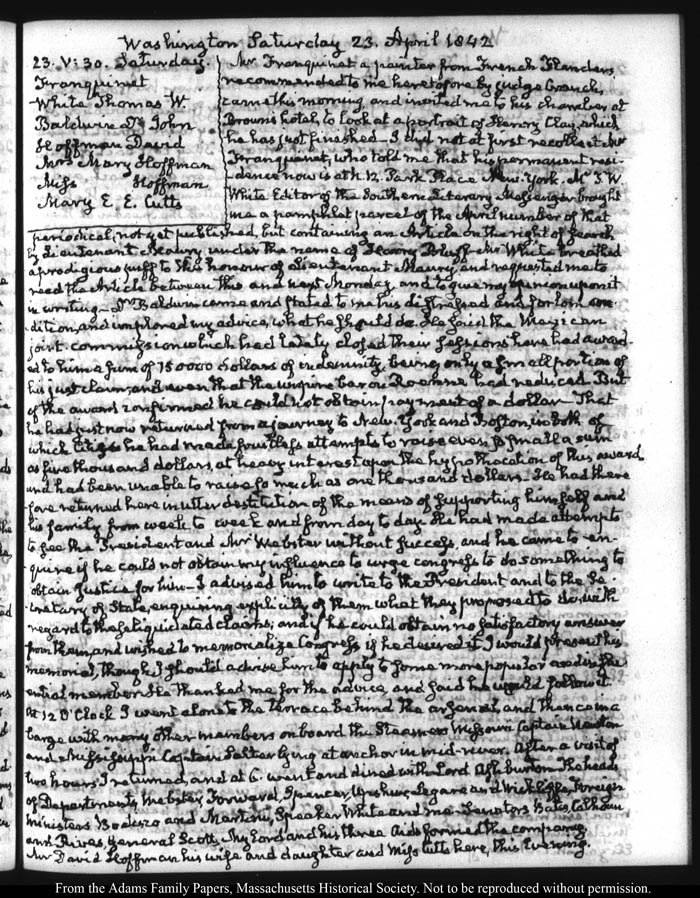 Washington Saturday 23. April 1842
23. V: 30. Saturday.
Franquinet
White Thomas W.
Baldwin Dr. John
Hoffman David
Mrs Mary Hoffman
Miss Hoffman
Mary E. E. Cutts
Mr Franquinet a painter from French Flanders,
recommended to me heretofore by judge Cranch,
came this morning, and invited me to his chamber at
Brown's hotel, to look at a portrait of Henry Clay, which
he has just finished. I did not at first recollect Mr
Franquinet, who told me that his permanent resi-
dence now is at N. 12. Park Place New-York. Mr T W
White Editor of the Southern Literary Messenger brought
me a pamphlet parcel of the April number of that
periodical, not yet published, but containing an Article on the right of search,
by Lieutenant Maury, under the name of Harry Bluff. Mr White breathed
a prodigious puff to the honour of Lieutenant Maury, and requested me to
read the Article between this and next Monday, and to give my opinion upon it
in writing. Dr Baldwin came and stated to me his distressed and forlorn con-
dition, and implored my advice, what he should do. He said the Mexican
joint commission which had lately closed their sessions have had award-
ed to him a sum of 150000 dollars of indemnity, being only a small portion of
his just claim, and even that the umpire baron Roenne had reduced. But
of the award confirmed he could not obtain payment of a dollar. That
he had just now returned from a journey to New-York and Boston, in both of
which cities he had made fruitless attempts to raise even so small a sum
as five thousand dollars, at heavy interest upon the hypothecation of this award
and had been unable to raise so much as one thousand dollars. He had there
fore returned here in utter destitution of the means of supporting himself and
his family from week to week and from day to day. He had made attempts
to see the President and Mr Webster without success, and he came to en-
quire if he could not obtain my influence to urge congress to do something to
obtain Justice for him. I advised him to write to the President and to the Se-
cretary of State, enquiring explicitly of them what they proposed to do with
regard to these liquidated claims; and if he could obtain no satisfactory answer
from them, and wished to memorialize Congress if he desired it I would present his
memorial, though I should advise him to apply to some more popular and influ
ential member. He thanked me for the advice, and said he would follow it.
At 12 O'Clock I went alone to the terrace behind the arsenal, and then in a
barge with many other members on board the Steamers Missouri Captain Newton
and Mississippi Captain Salter lying at anchor in mid-river. After a visit of
two hours I returned, and at 6. went and dined with Lord Ashburton. The heads
of Departments, Webster, Forward, Spencer, Upshur, Legare and Wickliffe, Foreign
ministers Bodisco and Martini, Speaker White and me. Senators Bates, Calhoun
and Rives, General Scott, My Lord and his three aids formed the company.
Mr David Hoffman his wife and daughter and Miss Cutts here, this Evening.
From the Adams Family Papers, Massachusetts Historical Society. Not to be reproduced without permission.